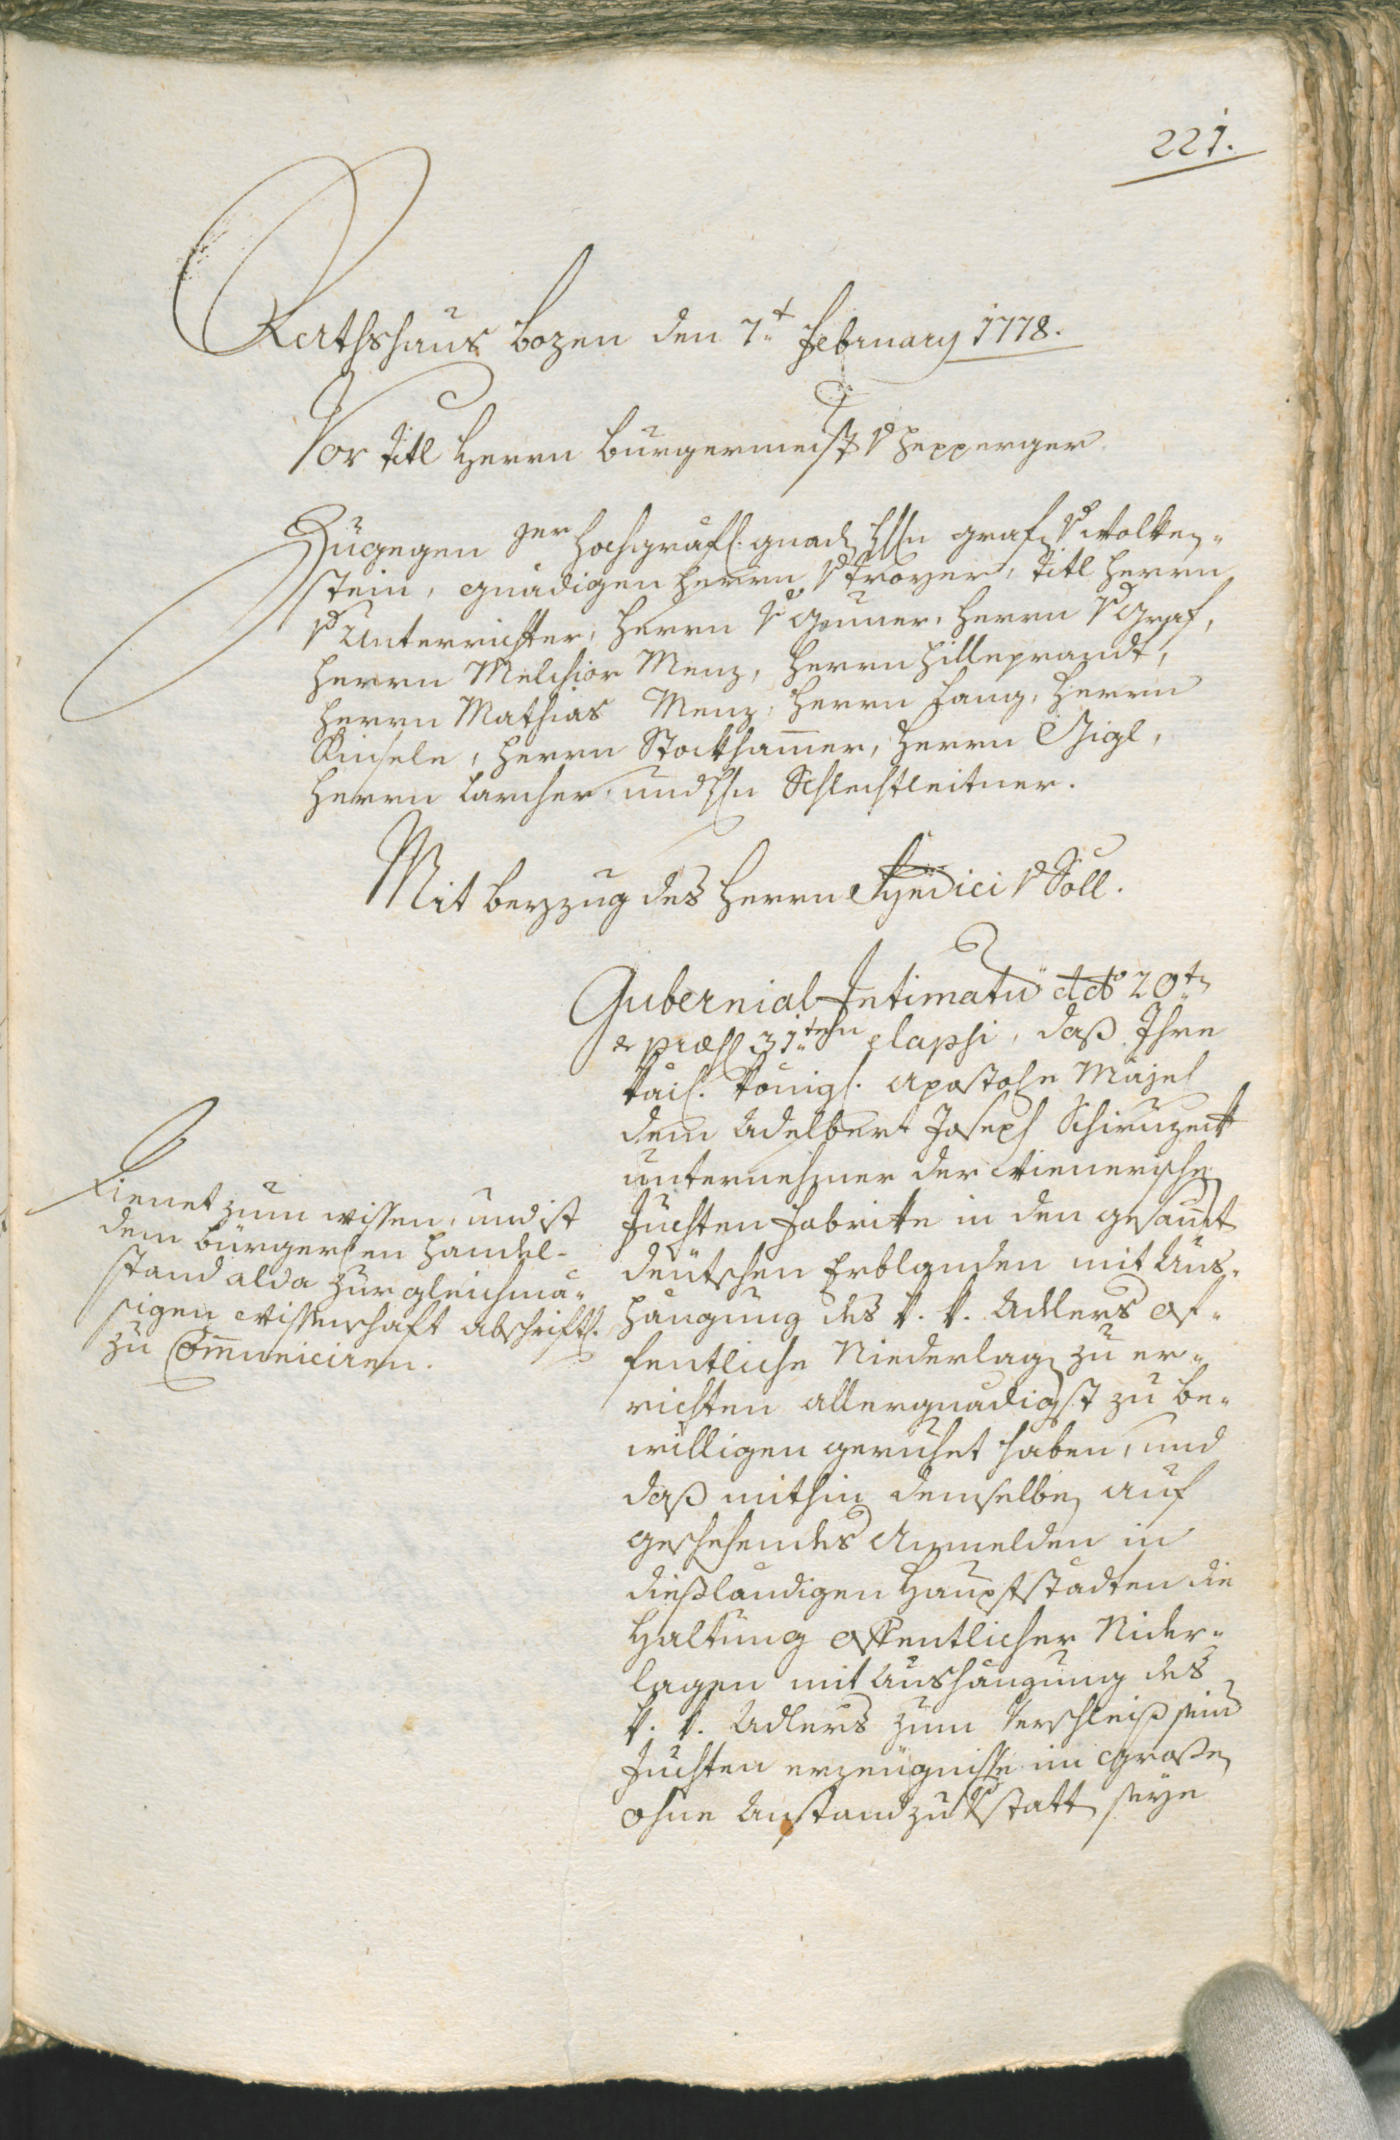 221.
Rathshaus Bozen den 7.t February 1778.
Vor titl Herrn Burgermeistr v Hepperger
Zugegen Ier Hochgräfl. gnad H̃n graf v Wolken-
stein, gnädigen Herrn v Troyer, titl Herrn
v Unterrichter, Herrn v Gumer, Herrn v Graf,
Herrn Melchior Menz, Herrn Hilleprandt,
Herrn Mathias Menz, Herrn Lang, Herrn
Kinsele, Herrn Stockham̅er, Herrn Gigl,
Herrn Larcher, und H̃n Schlechtleitner.
Mit beyzug des Herrn Syndici v Söll.
Gubernial Intimatum ddto 20tn
& præs 31ten elapsi, daß Ihre
Kais. Königl. Apostolse Majes
dem Adelbert Joseph Schirnzeitt
unternehmer der Wienerischen
Juchten Fabrike in den gesam̅t
deutschen Erblanden mit Aus-
hängung des K. K. Adlers of-
fentliche Niederlag zu er-
richten allergnädigst zu be-
willigen geruhet haben, und
daß mithin demselben auf
geschehendes Anmelden in
dießländigen Hauptstädten die
Haltung offentlicher Nider-
lagen mit Aushängung des
K. K. Adlers zum Verschleiß seind
Juchten erzeugnisse im Großen
ohne Anstand zu vstatten seye
Dienet zum wissen, und ist
dem bürgerlen Handel-
stand alda zur gleichmä-
sigen Wissenschaft abschriftl.
zu Com̅uniciren.